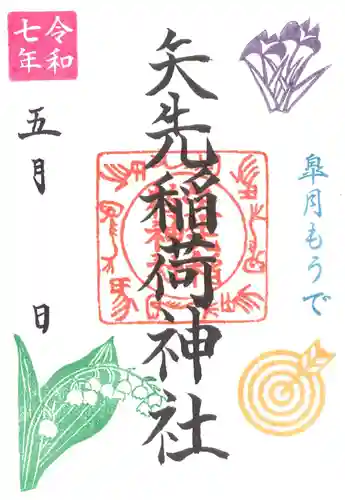 令和
七年
五月 日
矢先稲荷神社
皐月もうで